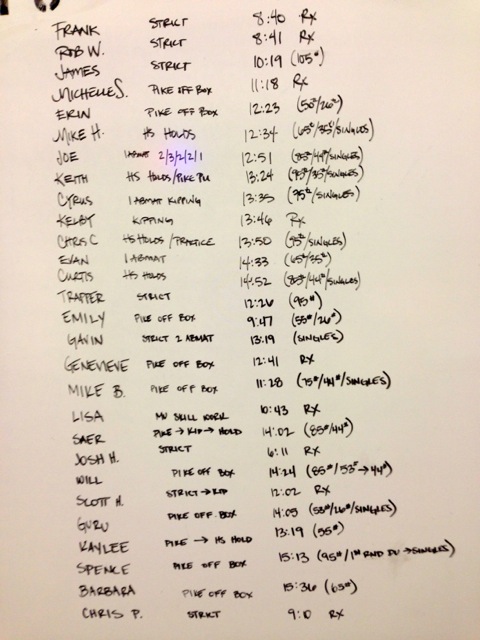 FRANK STRICT 8:40 RX
ROB W. STRICT 8:41 RX
JAMES STRICT 10:19 (105#)
MICHELLE S. PIKE OFF BOX 11:18 RX
ERIN PIKE OFF BOX 12:23 (55#/26#)
MIKE H. HS HOLDS 12:34 (65#/35#/SINGLES)
JOE 1 ABMAT 2/3/2/2/1 12:51 (85#/44#/SINGLES)
KEITH HS HOLDS/PIKE PU 13:24 (95#/35#/SINGLES)
CYRUS 1 ABMAT KIPPING 13:35 (75#/SINGLES)
KELBY KIPPING 13:46 RX
CHRIS C HS HOLDS/PRACTICE 13:50 (95#/SINGLES)
EVAN 1 ABMAT 14:33 (65#/35#)
CURTIS HS HOLDS 14:52 (85#/44#/SINGLES)
TRAPPER STRICT 12:26 (95#)
EMILY PIKE OFF BOX 9:47 (55#/26#)
GAVIN STRICT 2 ABMAT 13:19 (SINGLES)
GENEVIEVE PIKE OFF BOX 12:41 RX
MIKE B. PIKE OFF BOX 11:28 (75#/44#/SINGLES)
LISA MU SKILL WORK 10:43 RX
SAER PIKE → KIP → HOLD 14:02 (85#/44#)
JOSH H. STRICT 6:11 RX
WILL PIKE OFF BOX 14:24 (85#/53# → 44#)
SCOTT H. STRICT → KIP 12:02 RX
GURU PIKE OFF BOX 14:05 (55#/26#/SINGLES)
KAYLEE PIKE → HS HOLD 13:19 (55#)
SPENCE PIKE OFF BOX 15:13 (95#/1ST RND DU → SINGLES)
BARBARA PIKE OFF BOX 15:36 (65#)
CHRIS P. STRICT 9:10 RX